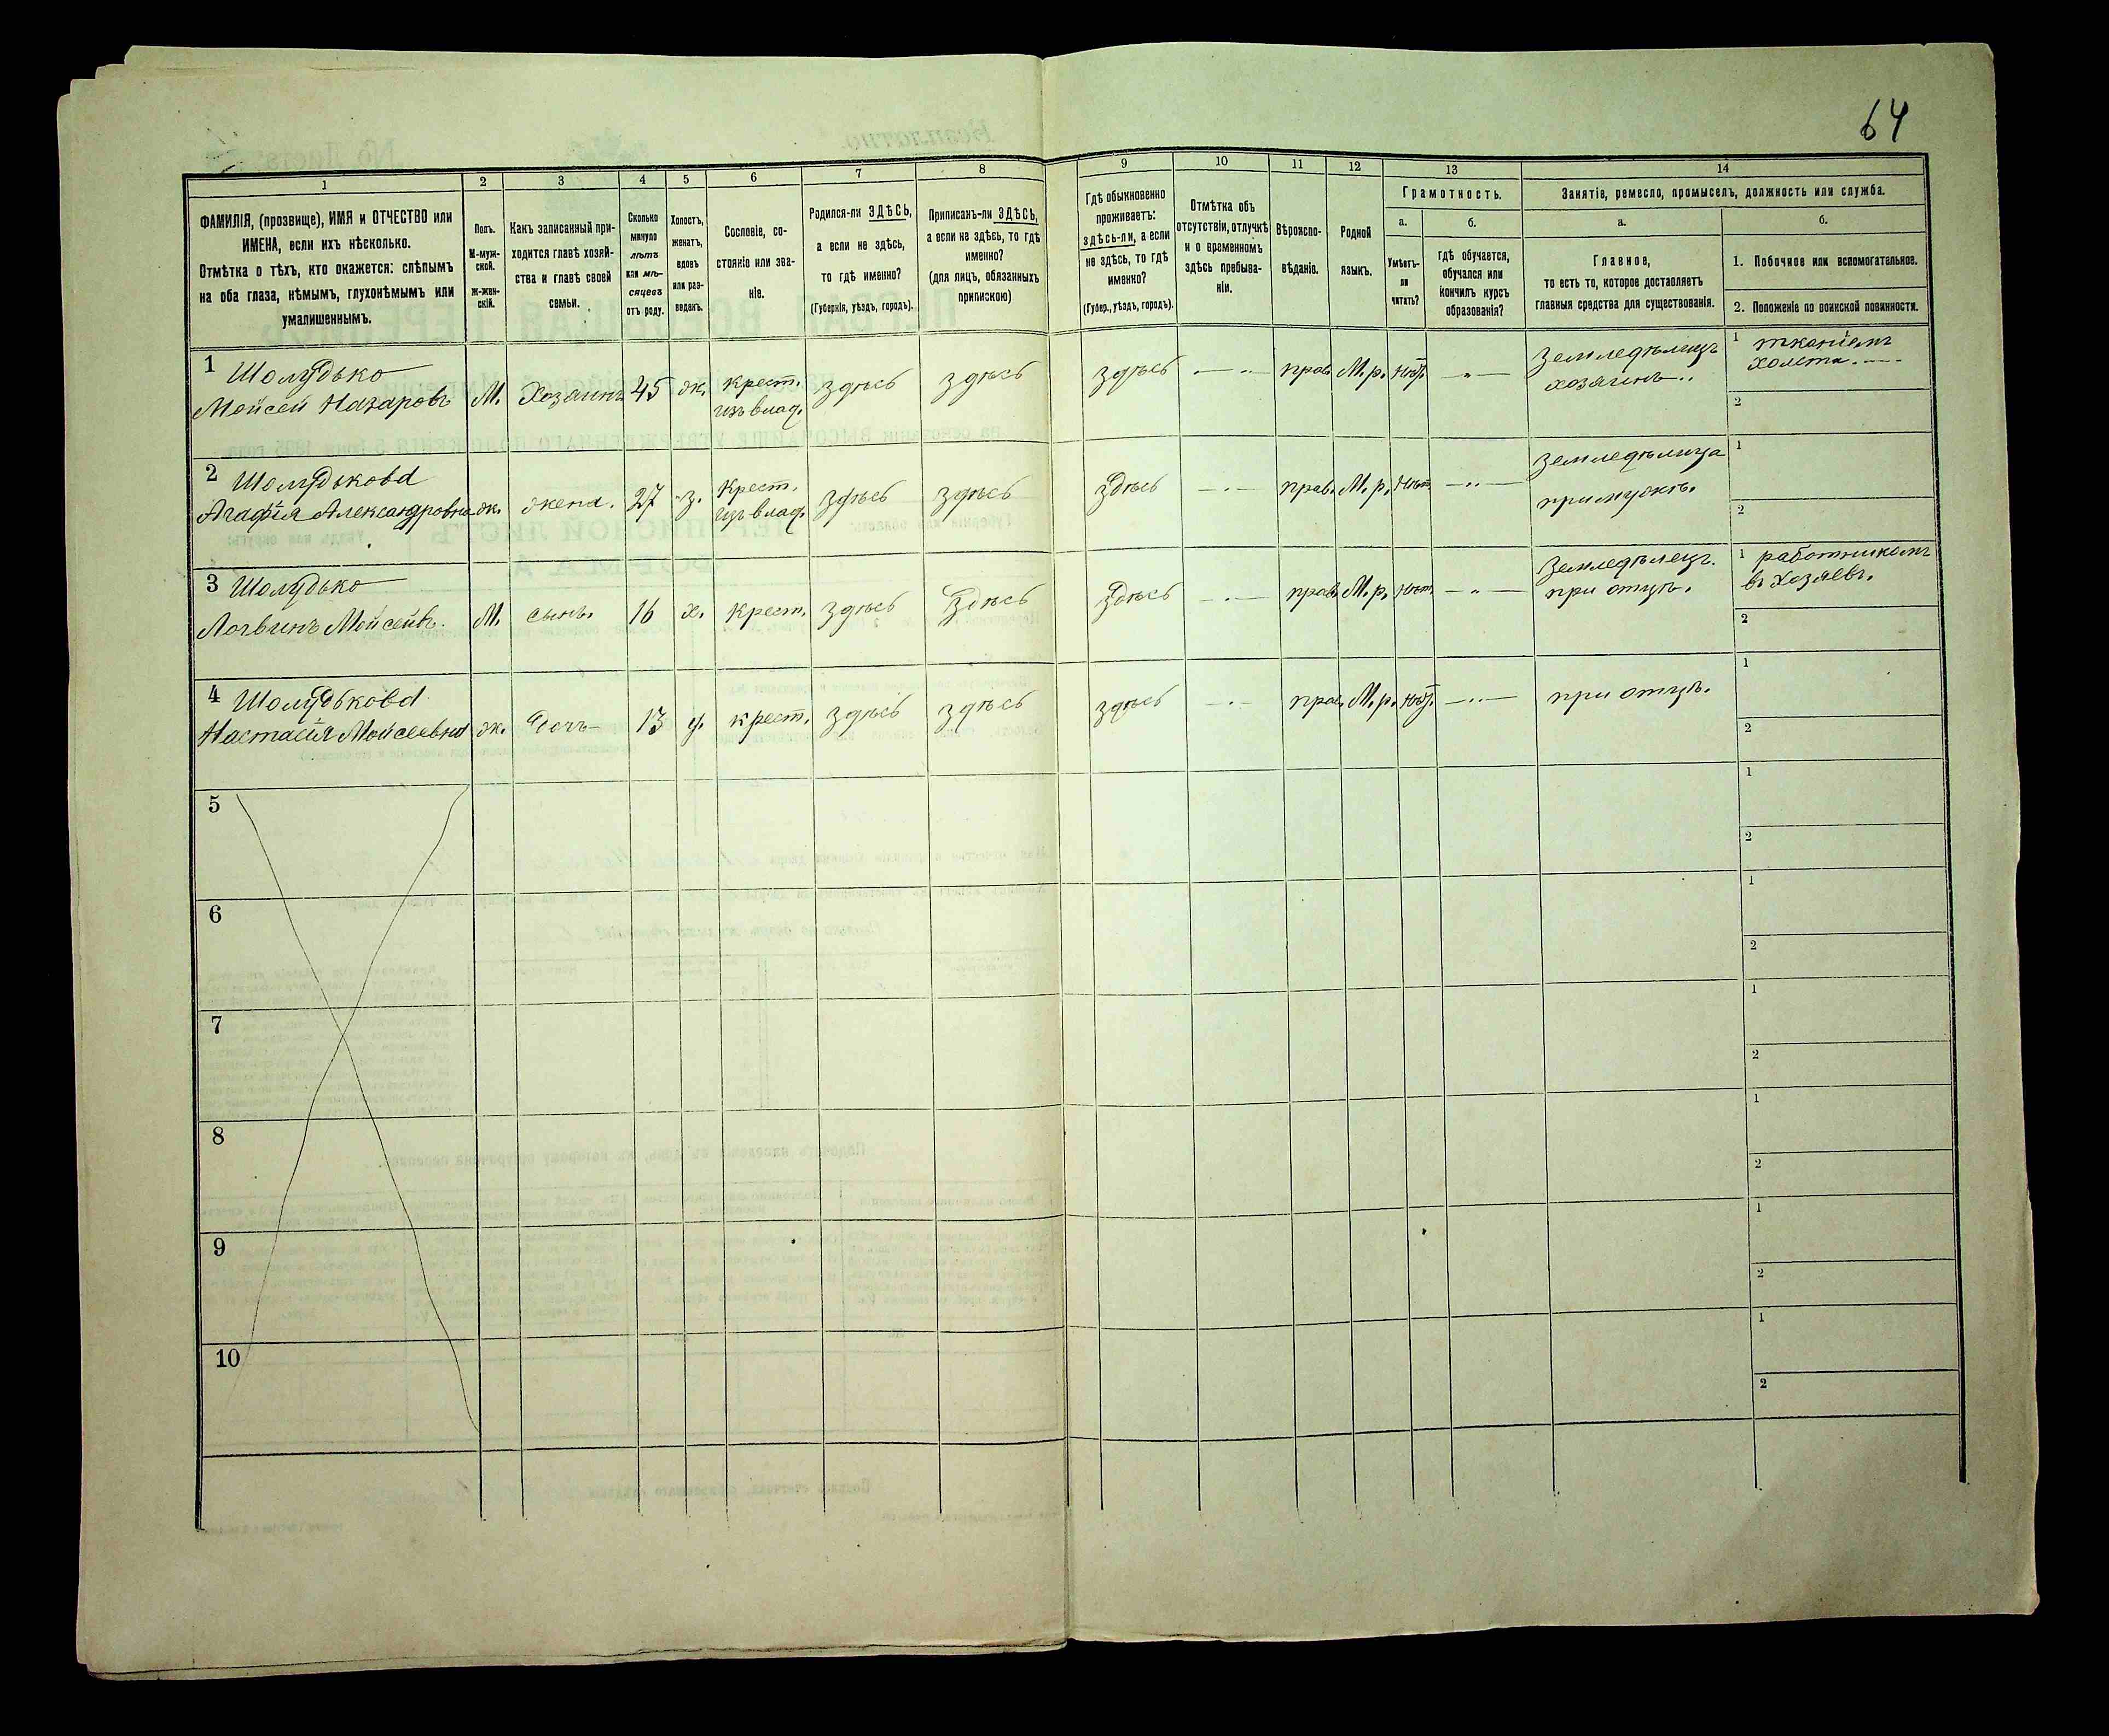 64
1
2
3
4
5
6
7
8
9
10
11
12
13
14
ФАМИЛІЯ, (прозвище), ИМЯ и ОТЧЕСТВО или
ИМЕНА, если ихъ нѣсколько.
Отмѣтка о тѣхъ, кто окажется: слѣпымъ
на оба глаза, нѣмымъ, глухонѣмымъ или
умалишеннымъ.
Полъ.
М-муж-
ской.
ж-жен-
скій.
Какъ записанный при-
ходится главѣ хозяй-
ства и главѣ своей
семьи.
Сколько
минуло
лѣтъ
или мѣ-
сяцевъ
отъ роду.
Холостъ,
женатъ,
вдовъ
или раз-
веденъ.
Сословіе, со-
стояніе или зва-
ніе.
Родился-ли ЗДѢСЬ,
а если не здѣсь,
то гдѣ именно?
(Губернія, уѣздъ, городъ).
Приписанъ-ли ЗДѢСЬ,
а если не здѣсь, то гдѣ
именно?
(для лицъ, обязанныхъ
припискою)
Гдѣ обыкновенно
проживаетъ:
здѣсь-ли, а если
не здѣсь, то гдѣ
именно?
(Губер., уѣздъ, городъ).
Отмѣтка объ
отсутствіи, отлучкѣ
и о временномъ
здѣсь пребыва-
ніи.
Вѣроиспо-
вѣданіе.
Родной
языкъ.
Грамотность.
а.
Умѣетъ-
ли
читать?
б.
гдѣ обучается,
обучался или
кончилъ курсъ
образованія?
Занятіе, ремесло, промыселъ, должность или служба.
а.
Главное,
то есть то, которое доставляетъ
главныя средства для существованія.
б.
1. Побочное или вспомогательное.
2. Положеніе по воинской повинности.
1 Шолудько
Мойсей Назаровъ
М.
Хозяинъ
45
ж.
крест.
изъ влад.
здѣсь
здѣсь
здѣсь
прав.
М.р.
нѣт.
Земледѣлецъ
хозяинъ..
1 тканіемъ
холста.
2
2 Шолудькова
Агафія Александровна
ж.
жена.
27
з.
Крест.
изъ влад.
здѣсь
здѣсь
здѣсь
прав.
М.р.
нѣт
Земледѣлица
при мужѣ.
1
2
3 Шолудько
Логвинъ Мойсеівъ.
М.
сынъ.
16
х.
крест.
здѣсь
здѣсь
здѣсь
прав.
М.р.
нѣт
Земледѣлецъ.
при отцѣ.
1 работникомъ
въ хозяевъ.
2
4 Шолудькова
Настасія Мойсеевна
ж.
дочъ
13
д.
крест.
здѣсь
здѣсь
здѣсь
прав.
М.р.
нѣт.
при отцѣ.
1
2
5
1
2
6
1
2
7
1
2
8
1
2
9
1
2
10
1
2